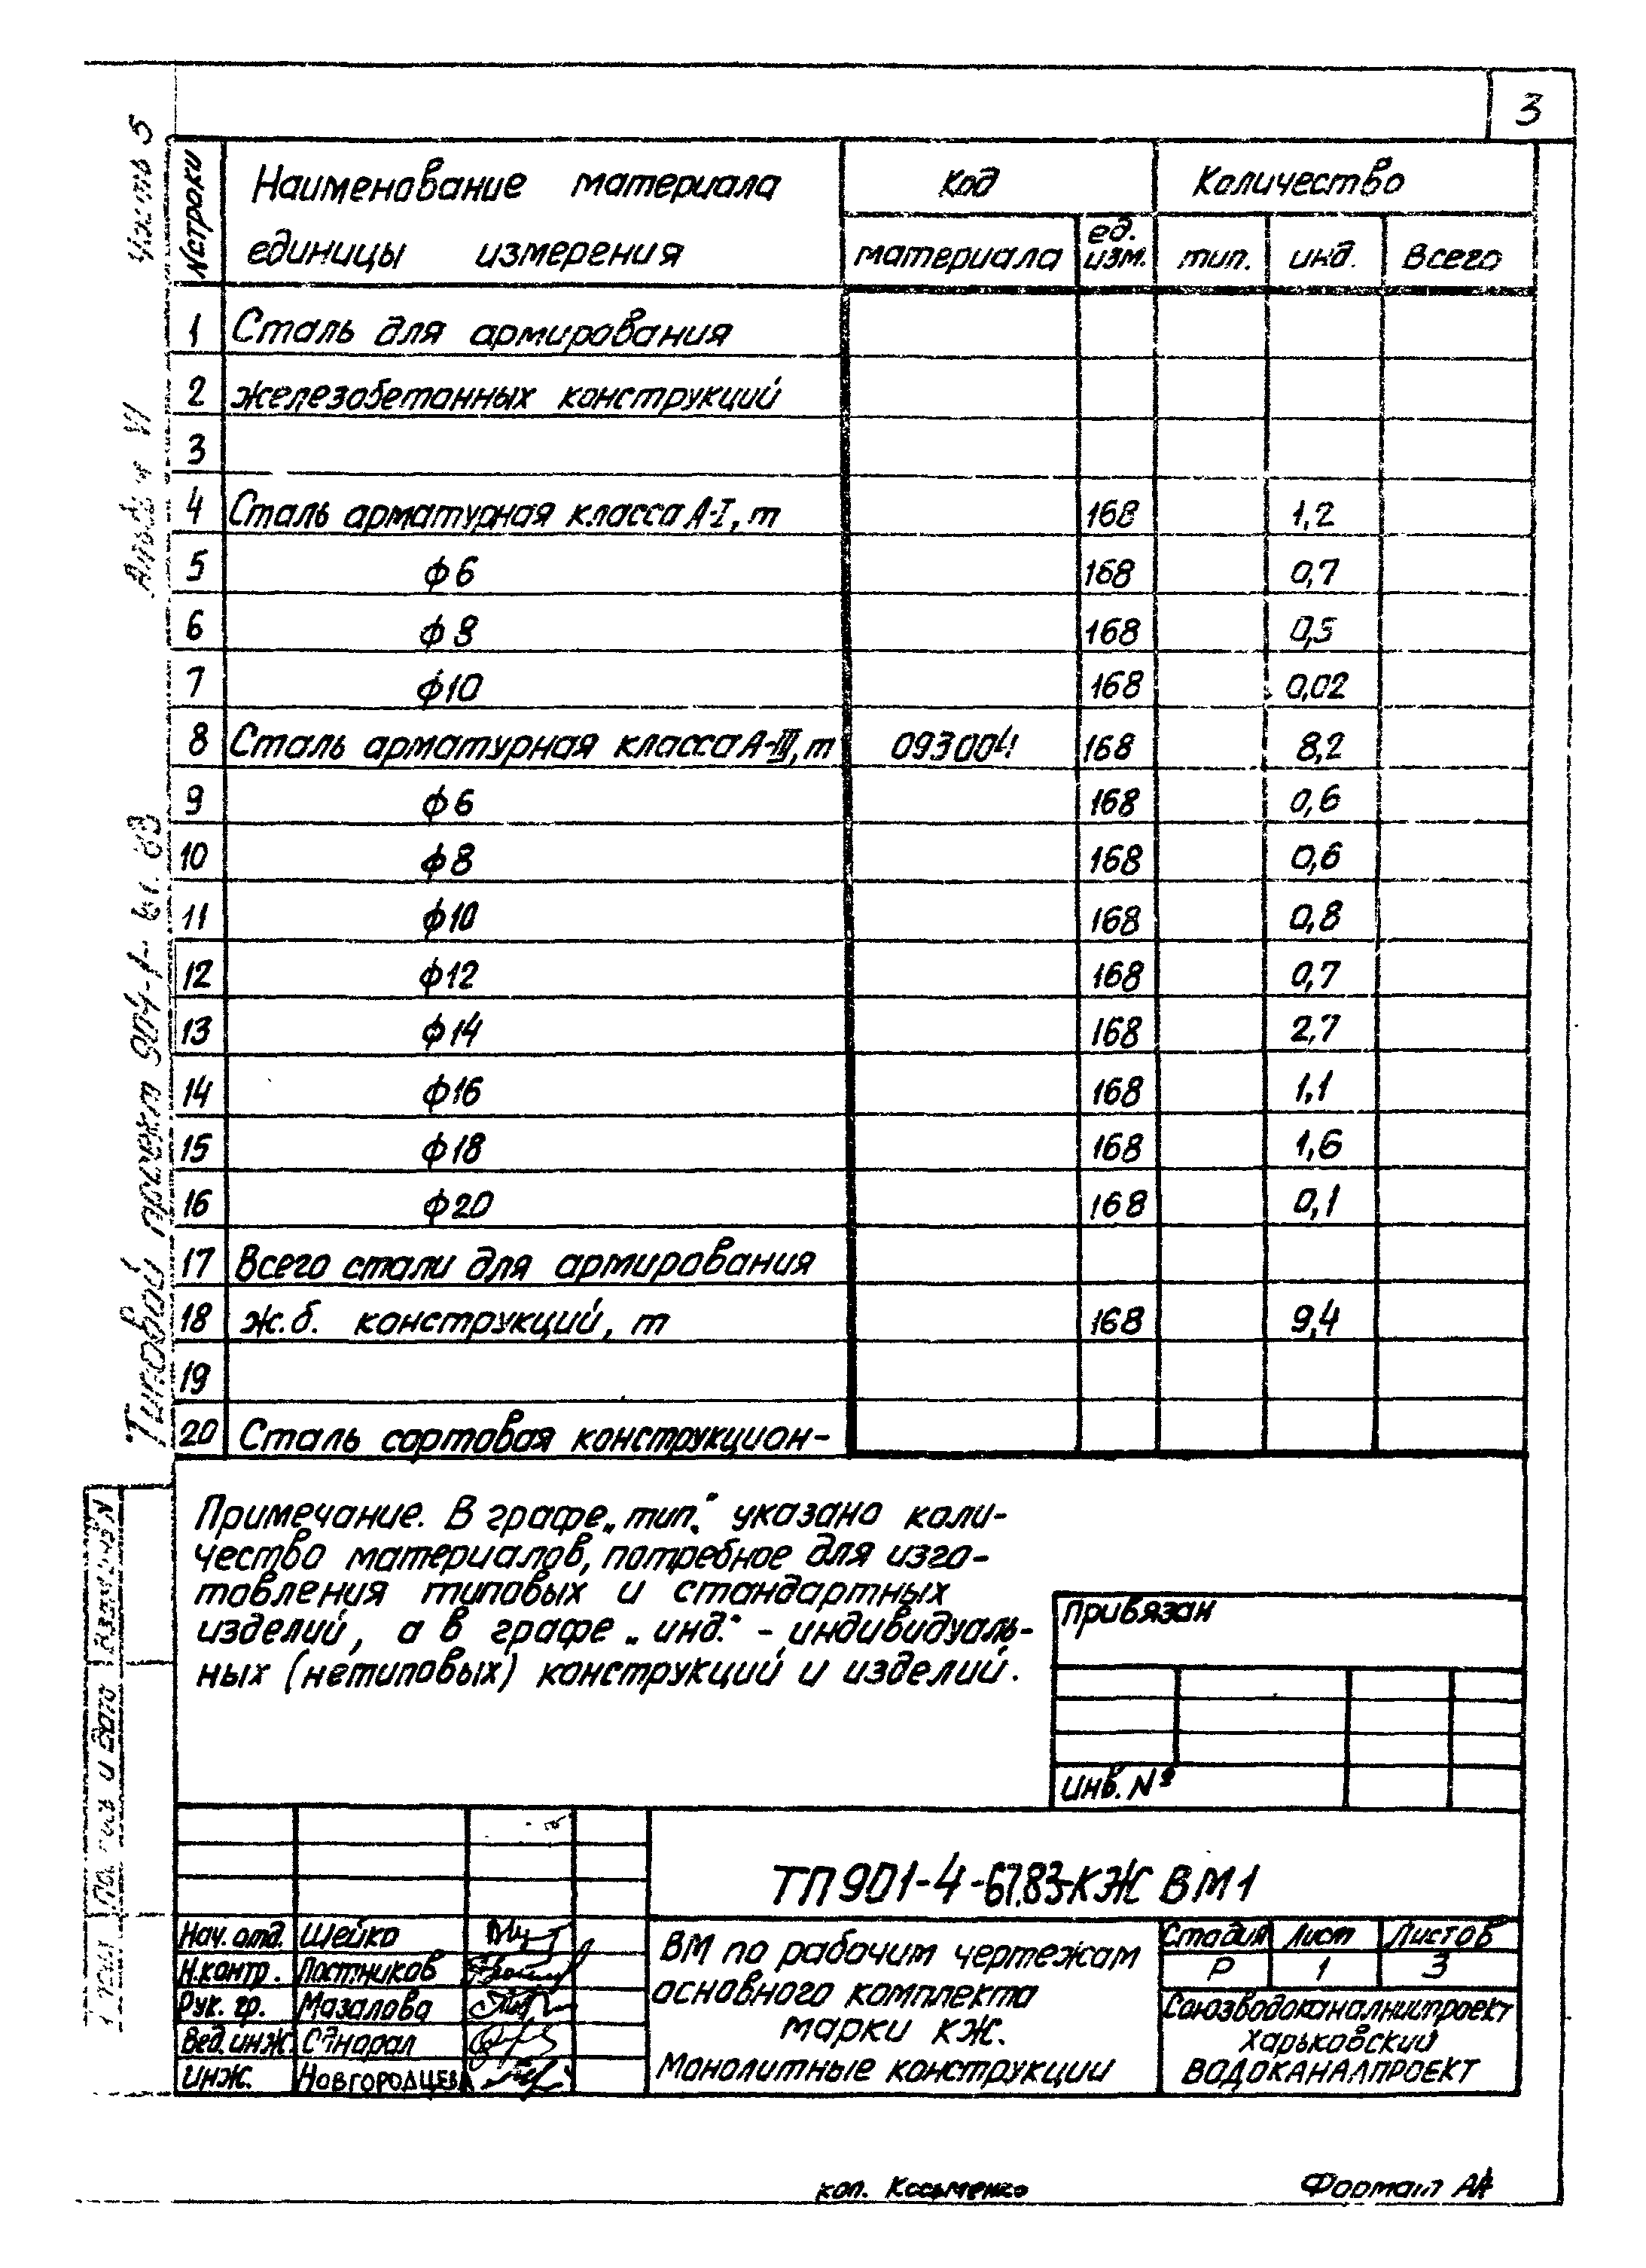 3
N строки Наименование материала единицы измерения Код Количество
материала ед. изм. тип. инд. Всего
1 Сталь для армирования
2 железобетонных конструкций
3
4 Сталь арматурная класса А-I, т 168 1,2
5 ф6 168 0,7
6 ф8 168 0,5
7 ф10 168 0,02
8 Сталь арматурная класса А-III, т 093004 168 8,2
9 ф6 168 0,6
10 ф8 168 0,6
11 ф10 168 0,8
12 ф12 168 0,7
13 ф14 168 2,7
14 ф16 168 1,1
15 ф18 168 1,6
16 ф20 168 0,1
17 Всего стали для армирования
18 ж.б. конструкций, т 168 9,4
19
20 Сталь сортовая конструкцион-
Примечание. В графе „тип." указано коли-
чество материалов, потребное для изго-
товления типовых и стандартных
изделий, а в графе „инд." - индивидуаль-
ных (нетиповых) конструкций и изделий.
Привязан
Инв. №
ТП 901-4-67.83-КЖ ВМ1
Нач. отд. Шейко
Н.контр. Постников
Рук. гр. Мазалова
Вед. инж. Однорал
Инж. Новгородцева
ВМ по рабочим чертежам
основного комплекта
марки КЖ.
Монолитные конструкции
Стадия Лист Листов
Р 1 3
Союзводоканалниипроект
Харьковский
ВОДОКАНАЛПРОЕКТ
коп. Косьменко
Формат А4
Типовой проект
Альбом VI
Часть 5